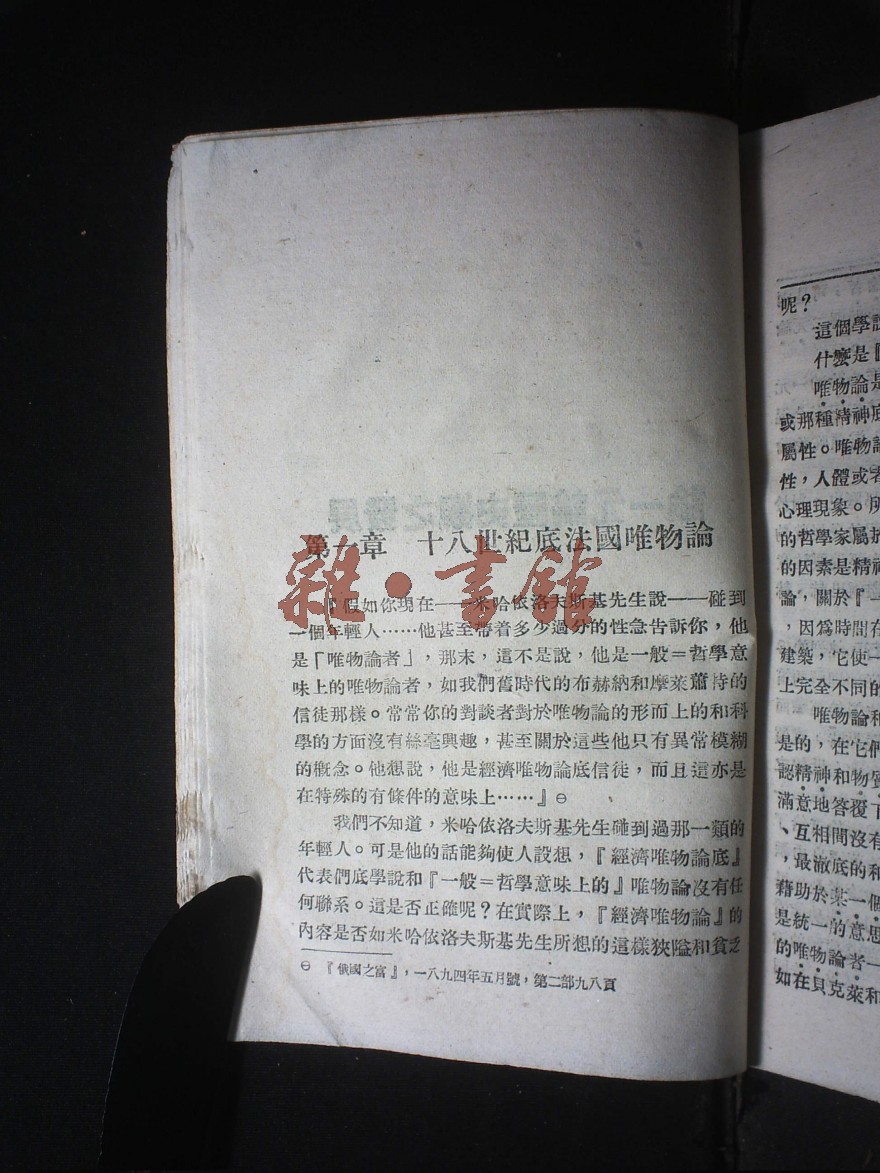 第一章 十八世紀底法國唯物論
雜·書館
『假如你現在——米哈依洛夫斯基先生說——碰到
一個年輕人……他甚至帶着多少過分的性急告訴你，他
是「唯物論者」，那末，這不是說，他是一般=哲學意
味上的唯物論者，如我們舊時代的布赫納和摩萊蕭特的
信徒那樣。常常你的對談者對於唯物論的形而上的和科
學的方面沒有絲毫興趣，甚至關於這些他只有異常模糊
的概念。他想說，他是經濟唯物論底信徒，而且這亦是
在特殊的有條件的意味上……』⊖
我們不知道，米哈依洛夫斯基先生碰到過那一類的
年輕人。可是他的話能夠使人設想，『經濟唯物論底』
代表們底學說和『一般=哲學意味上的』唯物論沒有任
何聯系。這是否正確呢？在實際上，『經濟唯物論』的
內容是否如米哈依洛夫斯基先生所想的這樣狹隘和貧乏
⊖ 『俄國之富』，一八九四年五月號，第二部九八頁
呢？
這個學
什麼是『
唯物論是
或那種精神底
屬性。唯物論
性，人體或者
心理現象。所
的哲學家屬於
的因素是精神
論，關於『一
，因爲時間在
建築，它使一
上完全不同的
唯物論和
是的，在它們
認精神和物質
滿意地答覆
、互相間沒有
，最澈底的和
藉助於某一個
是統一的意思
的唯物論者—
如在貝克萊和